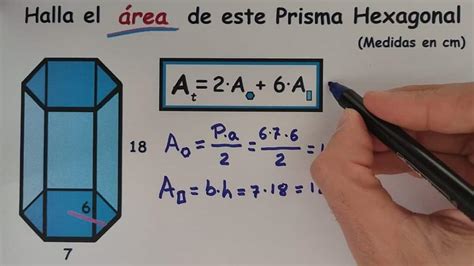 Halla el área de este Prisma Hexagonal
(Medidas en cm)
At = 2·A⬡ + 6·A▯
18
A⬡ = P.a/2 = 6.7.6/2 = 1
A▯ = b.h = 7.18 = 1
6
7